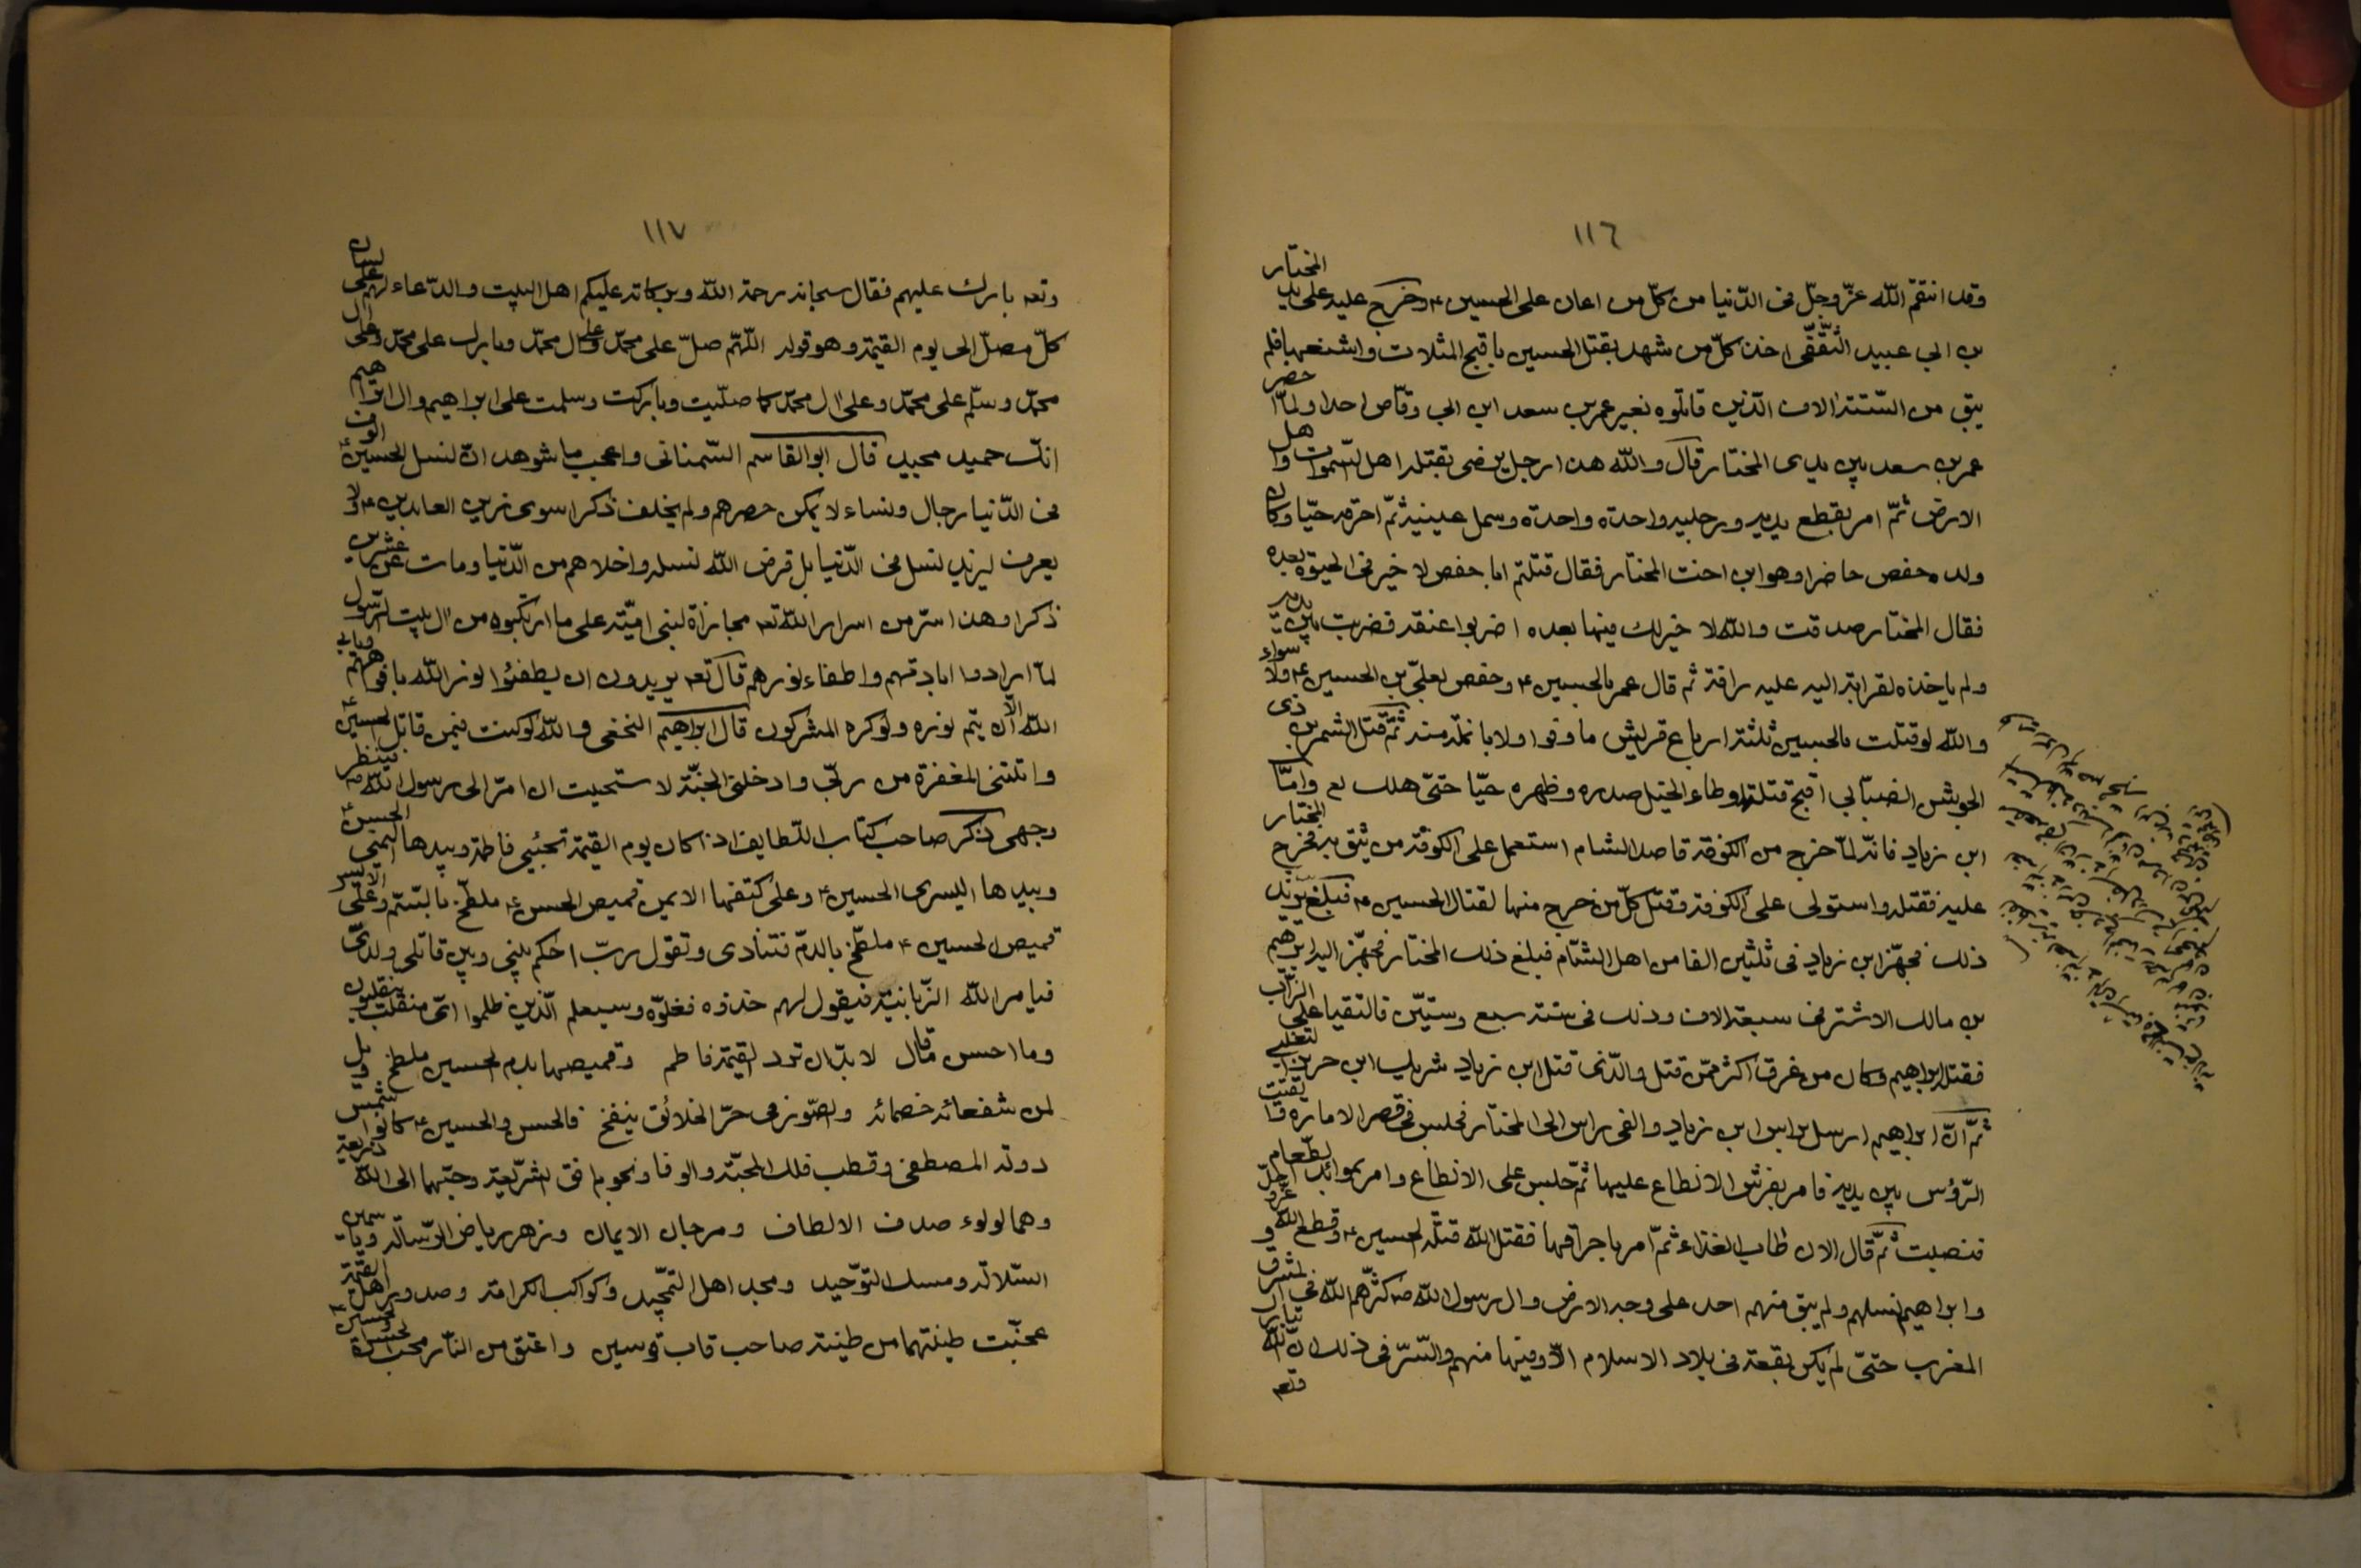 ١١٦
وقد انتقم الله عزّ وجلّ فى الدّنيا من كلّ من اعان على الحسين ع وخرج عليه على يد المختار
بن ابي عبيد الثّقفى اخذ كلّ من شهد بقتل الحسين باقبح المثلات واشنعها فلم
يبق من السّتة الاف الّذين قاتلوه بعير عمر بن سعد ابن ابي وقّاص احدا ولمّا حضر
عمر بن سعد بين يدى المختار قال والله هذا رجل يرضى بقتله اهل السّموات واهل
الارض ثمّ امر بقطع يديه ورجليه واحدة واحدة وسمل عينيه ثمّ احرقه حيّا وكان
ولده حفص حاضرا وهو ابن اخت المختار فقال قتلتم ابا حفص لا خير فى الحيوة بعده
فقال المختار صدقت والله لا خير لك فيها بعده اضربوا عنقه فضربت بين يديه
ولم ياخذه لقرابته اليه عليه رافة ثم قال عمر بالحسين ع وحفص بعلىّ بن الحسين ع ولا سواء
والله لو قتلت بالحسين ثلثة ارباع قريش ما وفوا ولا بانملة منه ثمّ قتل الشمر بن ذى
الجوشن الضبابي اقبح قتلة واوطاء الخيل صدره وظهره حيّا حتىّ هلك لع وامّا
ابن زياد فانّه لمّا خرج من الكوفة قاصد الشام استعمل على الكوفة من يثق به فخرج المختار
عليه فقتله واستولى على الكوفة وقتل كلّ من خرج منها لقتال الحسين ع فبلغ يزيد
ذلك فجهّز ابن زياد فى ثلثين الفا من اهل الشّام فبلغ ذلك المختار فجهّز اليه ابرهيم
بن مالك الاشتر فى سبعة الاف وذلك فى سنة سبع وستيّن فالتقيا على الزّاب
فقتله ابراهيم وكان من غرق اكثر ممّن قتل والّذى قتل ابن زياد شريك ابن حريز التغلبى
ثمّ انّ ابراهيم ارسل براس ابن زياد والقى راس الى المختار فجلس فى قصر الاماره
الرّؤس بين يديه فامر بفرش الانطاع عليها ثمّ جلس على الانطاع وامر بموائد الطّعام
فنصبت ثمّ قال الان طاب الغذاء ثمّ امر باحراقها فقتل الله قتلة الحسين ع وقطع الله عزّ وجلّ
وابراهيم نسلهم ولم يبق منهم احد على وجه الارض وال رسول الله ص كثّرهم الله فى المشرق و
المغرب حتىّ لم يكن بقعة فى بلاد الاسلام الاّ وفيها منهم والسّرّ فى ذلك انّ الله تبارك
وتعه
١١٧
وتعه بارك عليهم فقال سبحانه رحمة الله وبركاته عليكم اهل البيت والدّعاء لهم على لسان
كلّ مصلّ الى يوم القيمة وهو قوله اللّهمّ صلّ على محمّد وعلى ال محمّد وبارك على محمّد وعلى ال
محمّد وسلّم على محمّد وعلى ال محمّد كما صلّيت وباركت وسلمت على ابراهيم وال ابراهيم
انّك حميد مجيد قال ابو القاسم السّمنانى واعجب ما شوهد انّ لنسل الحسين ع الوف
فى الدّنيا رجال ونساء لا يمكن حصرهم ولم يخلف ذكرا سوى زين العابدين ع ولا
يعرف ليزيد نسل فى الدّنيا بل قرض الله نسله واخلاهم من الدّنيا ومات عن عشرين
ذكرا وهذا سرّ من اسرار الله تعه مجازاة لبنى اميّة على ما ارتكبوه من ال بيت الرّسول
لمّا ارادوا ابادتهم واطفاء نورهم قال تعه يريدون ان يطفئوا نور الله بافواههم ويابى
الله الاّ ان يتم نوره ولو كره المشركون قال ابراهيم النخعى والله لو كنت فيمن قاتل الحسين ع
واتتنى المغفرة من ربّى وادخلنى الجنّة لاستحييت ان امرّ الى رسول الله ص فينظر
وجهى ذكر صاحب كتاب اللّطايف اذا كان يوم القيمة تجئي فاطمة وبيدها اليمنى الحسن ع
وبيدها اليسرى الحسين ع وعلى كتفها الايمن قميص الحسن ع ملطّخ بالسّم وعلى الايسر
قميص الحسين ع ملطّخ بالدّم فتنادى وتقول ربّ احكم بينى وبين قاتلى ولدىّ
فيامر الله الزّبانية فيقول لهم خذوه فغلوّه وسيعلم الّذين ظلموا اىّ منقلب ينقلبون
وما احسن ما قال لا بدّ ان ترد القيمة فاطم وقميصها بدم الحسين ملطخ ويل
لمن شفعائه خصمائه والصّور فى حرّ الخلائق ينفخ فالحسن والحسين ع كانوا شمس
دولة المصطفى وقطب فلك المحبّة والوفا ونجوم افق الشّريعة وحبّهما الى الله ذريعة
وهما لولوء صدف الالطاف ومرجان الايمان وزهر رياض الرّسالة
السّلالة ومسك التوّحيد ومجد اهل التمّجيد وكواكب الكرامة وصدور اهل القيمة
عجنّت طينتهما من طينة صاحب قاب قوسين واعتق من النّار محب الحسن والحسين ع